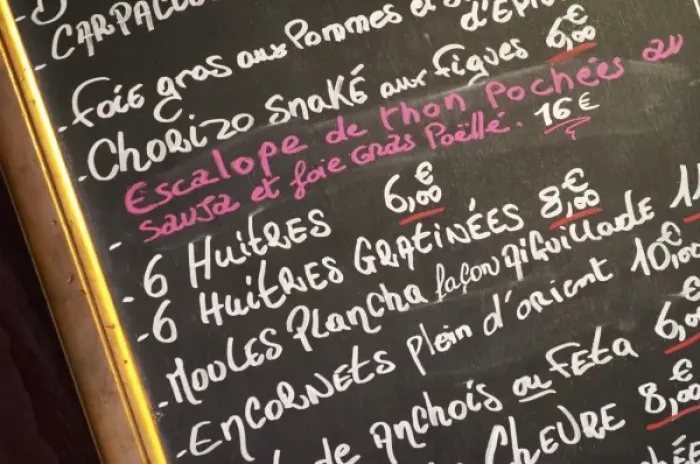 - CARPACC
d'ÉPI
- Foie gras aux Pommes et
- CHORIZO SNAKÉ aux figues 6,00 €
Escalope de thon Pochées au
- sauja et foie Gras Poëllé. 16 €
- 6 HUITRES 6,00 €
- 6 HUITRES GRATINÉES 8,00 €
- MOULES Plancha façon Aiguillade 1
- ENCORNETS plein d'orient 10,00
de ANCHOIS ou FETA 6,00
CHEVRE 8,00